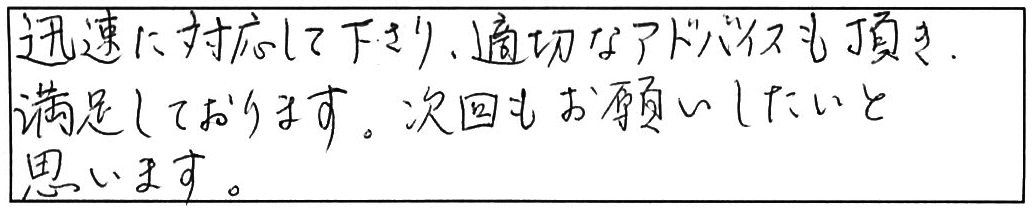 迅速に対応して下さり、適切なアドバイスも頂き、
満足しております。次回もお願いしたいと
思います。